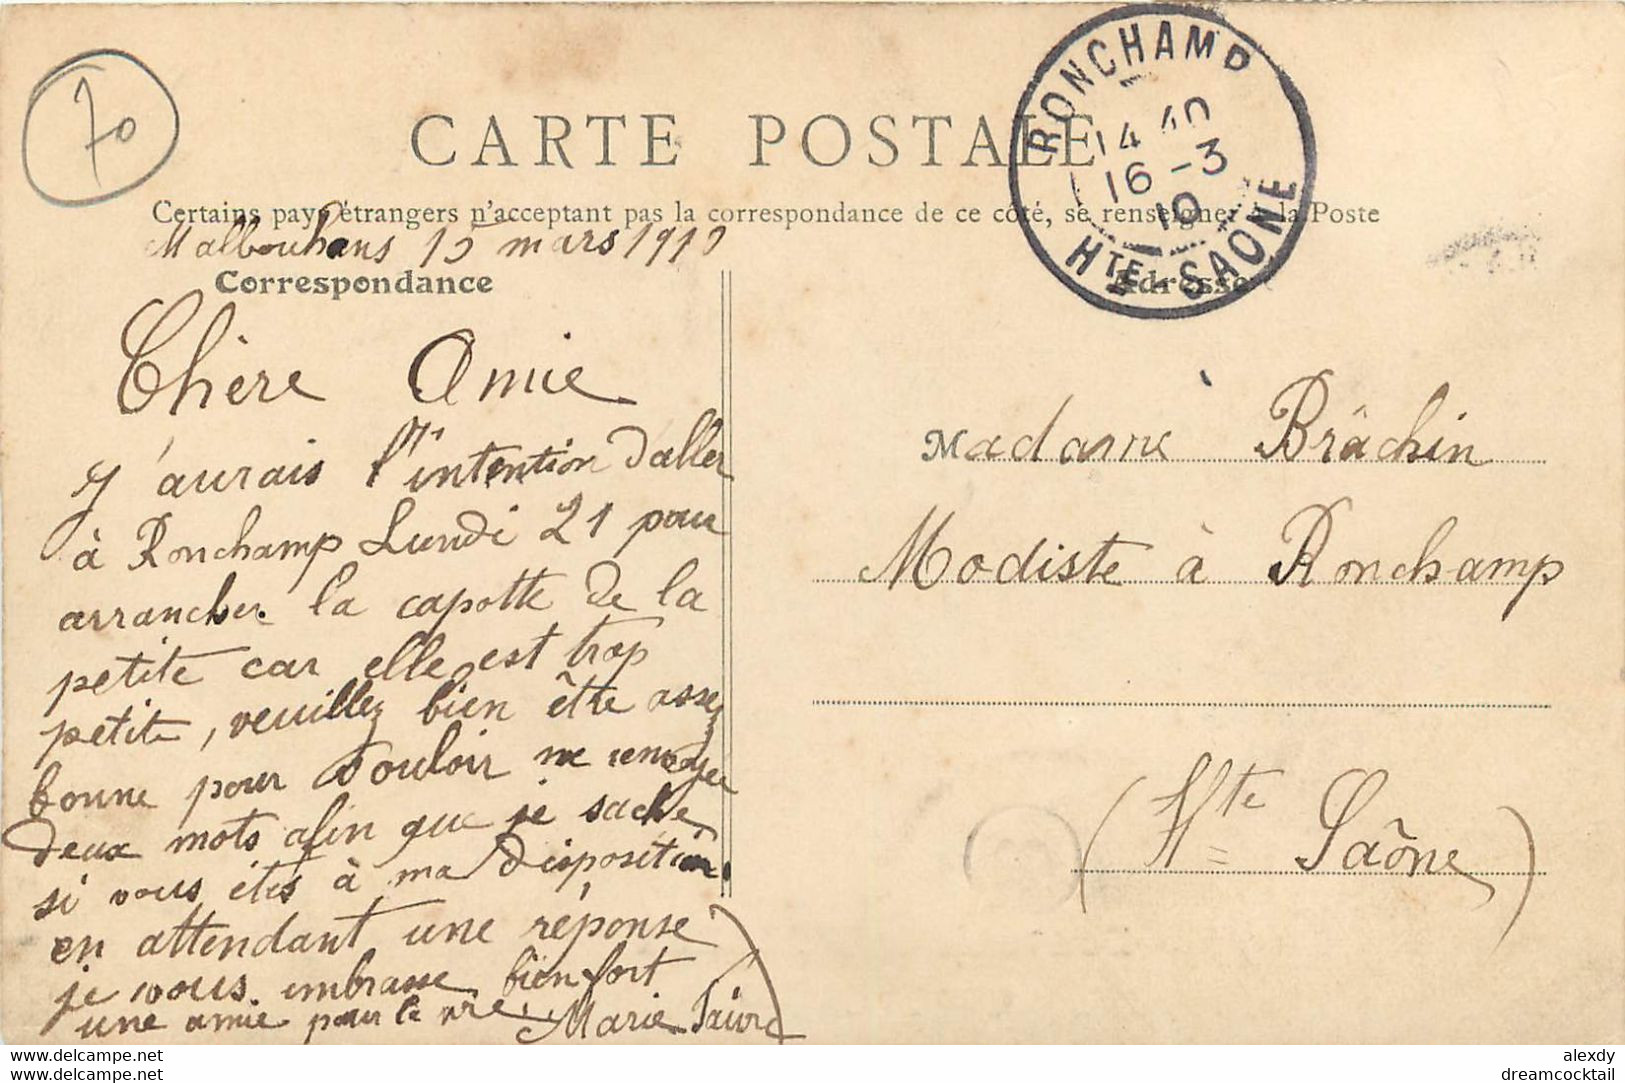 70
CARTE POSTALE
RONCHAMP
14 40
16 - 3
10
HTE - SAONE
Certains pays étrangers n'acceptant pas la correspondance de ce côté, se renseigner à la Poste
Malbouhans 15 mars 1910
Correspondance
Adresse
Chère Amie
J'aurais l'intention d'aller
à Ronchamp Lundi 21 pour
arrancher la capotte de la
petite car elle est trop
petite, veuillez bien être assez
bonne pour vouloir me renvoyer
deux mots afin que je sache
si vous êtes à ma disposition.
en attendant une réponse
je vous embrasse bien fort
une amie pour la vie. Marie
Madame Brâchin
Modiste à Ronchamp
(Hte Saône)
www.delcampe.net
alexdy
dreamcocktail